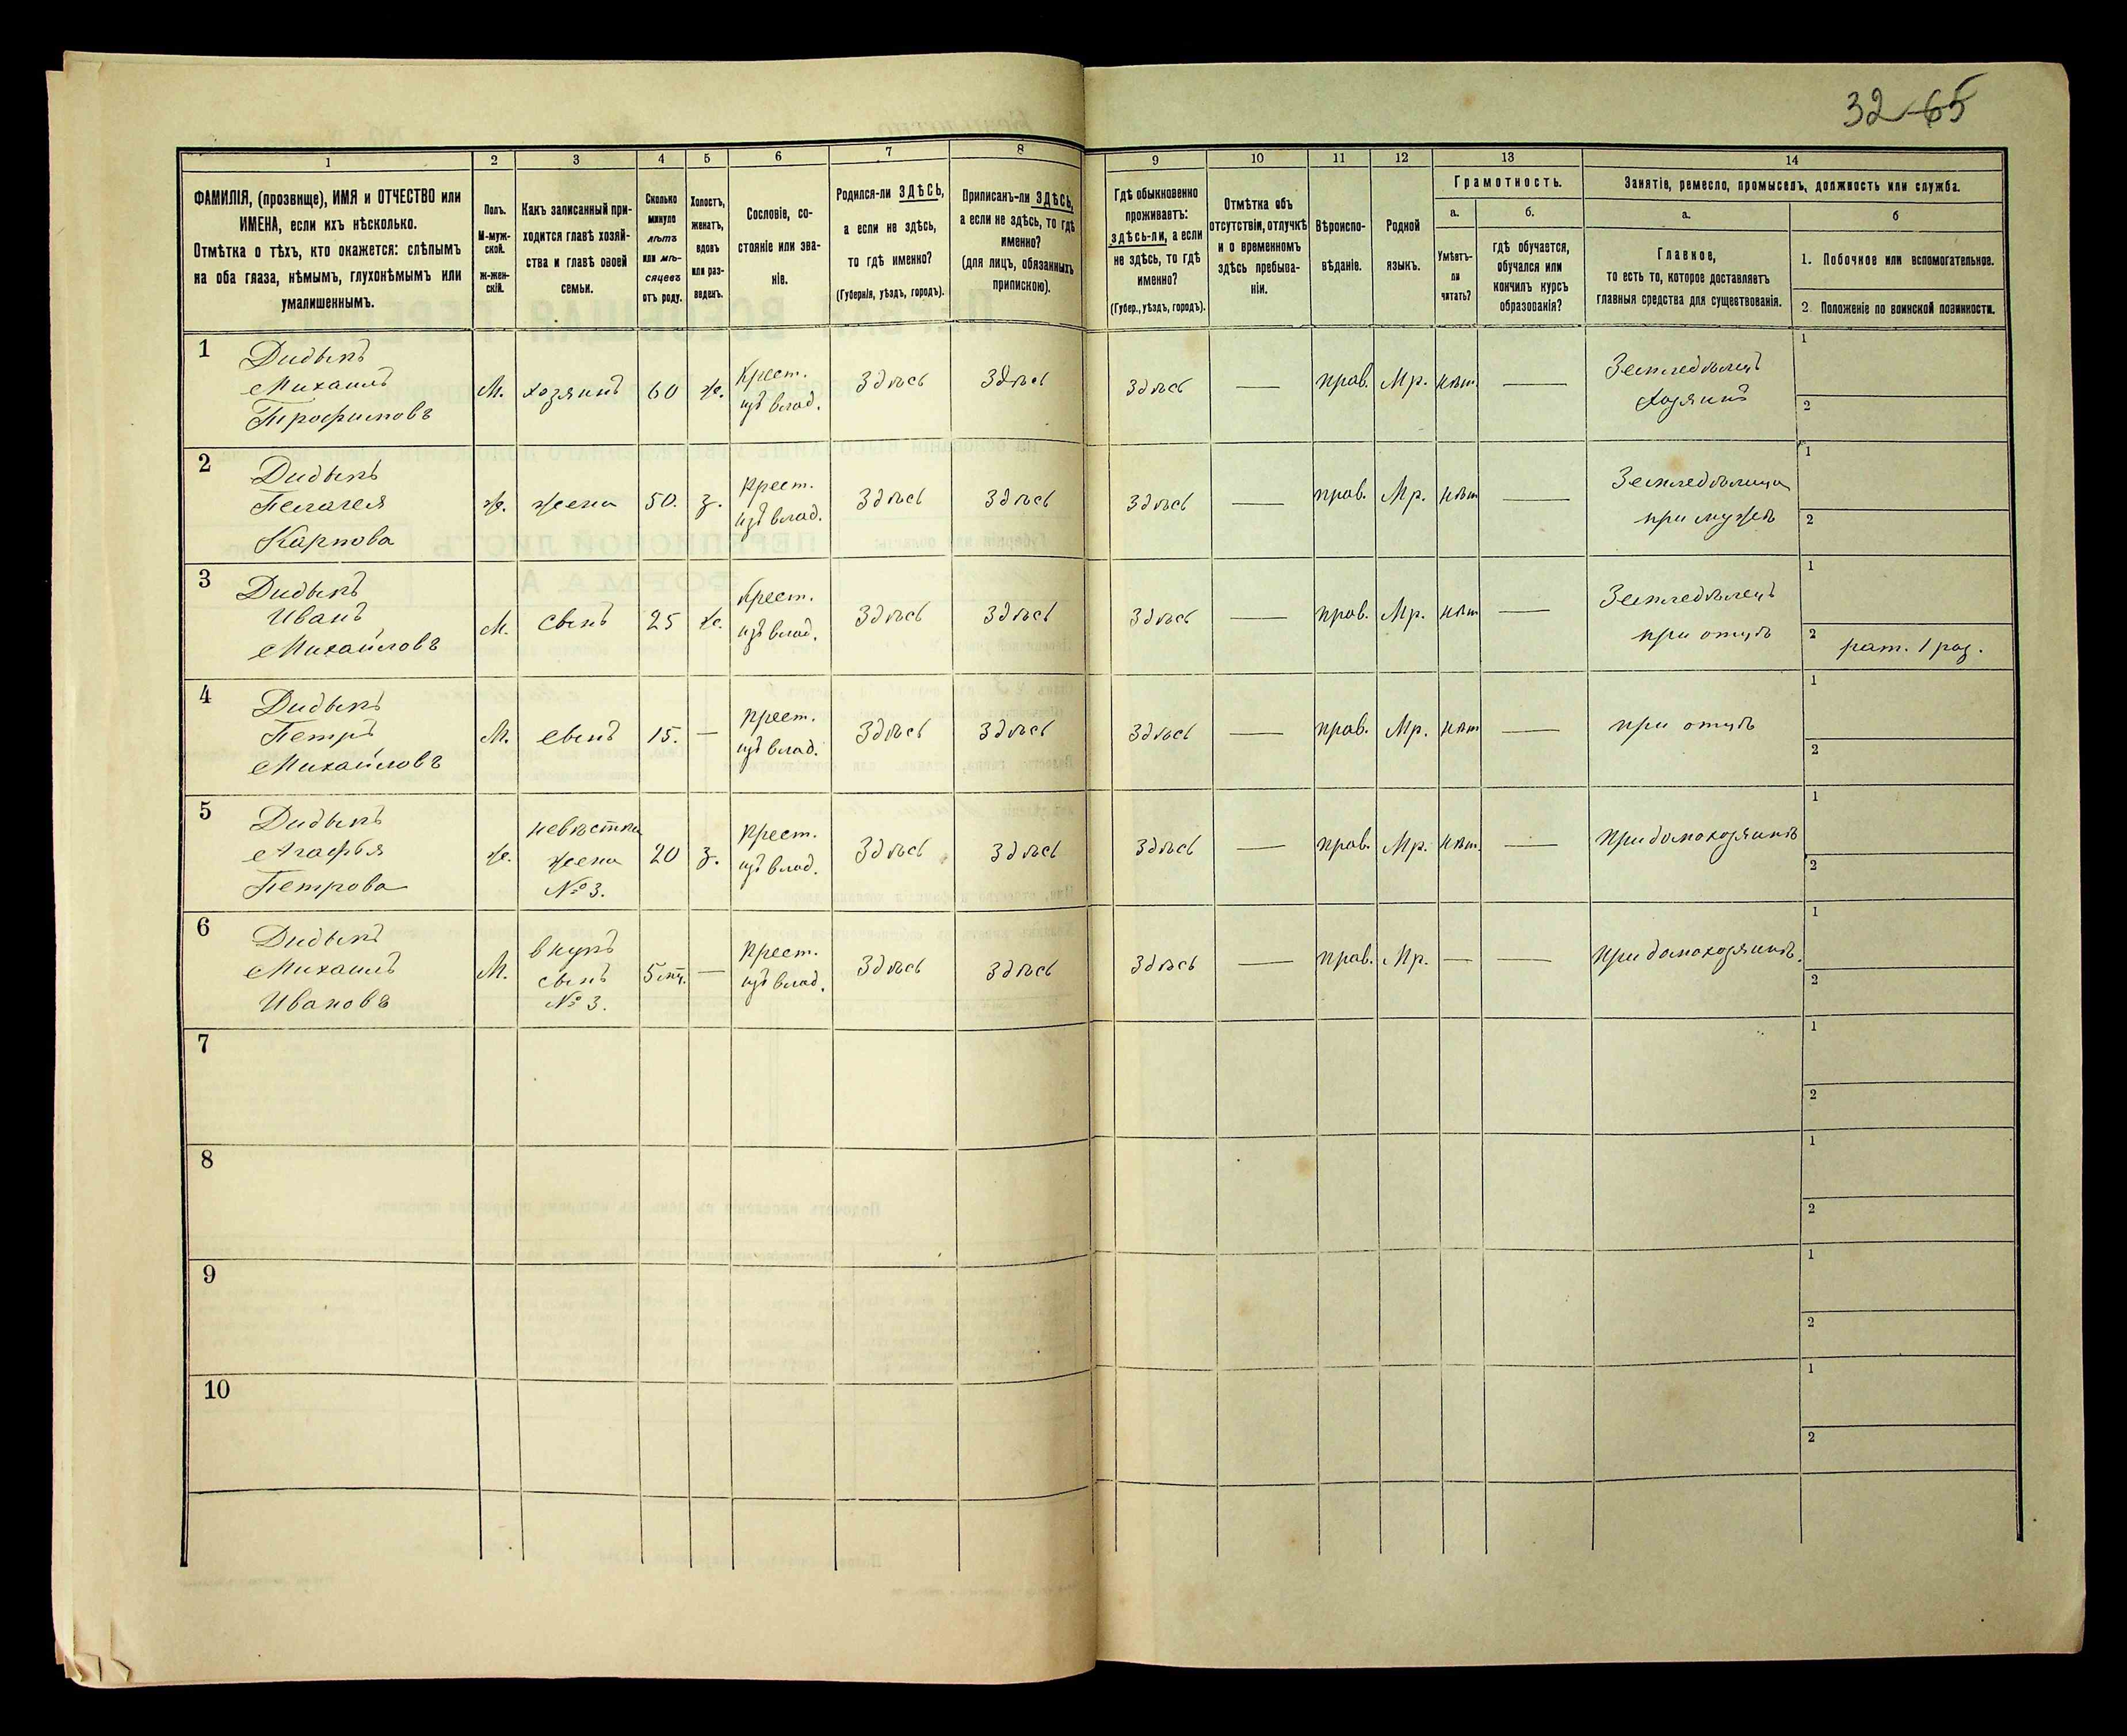 32 65
1 2 3 4 5 6 7 8 9 10 11 12 13 14
ФАМИЛІЯ, (прозвище), ИМЯ и ОТЧЕСТВО или
ИМЕНА, если ихъ нѣсколько.
Отмѣтка о тѣхъ, кто окажется: слѣпымъ
на оба глаза, нѣмымъ, глухонѣмымъ или
умалишеннымъ.
Полъ.
М-муж-
ской.
Ж-жен-
скій.
Какъ записанный при-
ходится главѣ хозяй-
ства и главѣ своей
семьи.
Сколько
минуло
лѣтъ
или мѣ-
сяцевъ
отъ роду.
Холостъ,
женатъ,
вдовъ
или раз-
веденъ.
Сословіе, со-
стояніе или зва-
ніе.
Родился-ли ЗДѢСЬ,
а если не здѣсь,
то гдѣ именно?
(Губернія, уѣздъ, городъ).
Приписанъ-ли ЗДѢСЬ,
а если не здѣсь, то гдѣ
именно?
(для лицъ, обязанныхъ
припискою).
Гдѣ обыкновенно
проживаетъ:
здѣсь-ли, а если
не здѣсь, то гдѣ
именно?
(Губер., уѣздъ, городъ).
Отмѣтка объ
отсутствіи, отлучкѣ
и о временномъ
здѣсь пребыва-
ніи.
Вѣроиспо-
вѣданіе.
Родной
языкъ.
Грамотность.
а.
Умѣетъ-
ли
читать?
б.
гдѣ обучается,
обучался или
кончилъ курсъ
образованія?
Занятіе, ремесло, промыселъ, должность или служба.
а.
Главное,
то есть то, которое доставляетъ
главныя средства для существованія.
б
1. Побочное или вспомогательное.
2. Положеніе по воинской повинности.
1
Дидыкъ
Михаилъ
Трофимовъ
М.
хозяинъ
60
ж.
Крест.
изъ влад.
Здѣсь
Здѣсь
Здѣсь
—
прав.
Мр.
нѣт
—
Земледѣлецъ
Хозяинъ
1
2
2
Дидыкъ
Пелагея
Карпова
ж.
жена
50.
з.
Крест.
изъ влад.
Здѣсь
Здѣсь
Здѣсь
—
прав.
Мр.
нѣт
—
Земледѣлица
при мужѣ
1
2
3
Дидыкъ
Иванъ
Михайловъ
М.
сынъ
25
ж.
Крест.
изъ влад.
Здѣсь
Здѣсь
Здѣсь
—
прав.
Мр.
нѣт
—
Земледѣлецъ
при отцѣ
1
2
рат. 1 раз.
4
Дидыкъ
Петръ
Михайловъ
М.
сынъ
15.
—
Крест.
изъ влад.
Здѣсь
Здѣсь
Здѣсь
—
прав.
Мр.
нѣт
—
при отцѣ
1
2
5
Дидыкъ
Агафья
Петрова
ж.
невѣстка
жена
№ 3.
20
з.
Крест.
изъ влад.
Здѣсь
Здѣсь
Здѣсь
—
прав.
Мр.
нѣт.
—
при домохозяинѣ
1
2
6
Дидыкъ
Михаилъ
Ивановъ
М.
внукъ
сынъ
№ 3.
5 мц.
—
Крест.
изъ влад.
Здѣсь
Здѣсь
Здѣсь
—
прав.
Мр.
—
—
при домохозяинѣ.
1
2
7
1
2
8
1
2
9
1
2
10
1
2